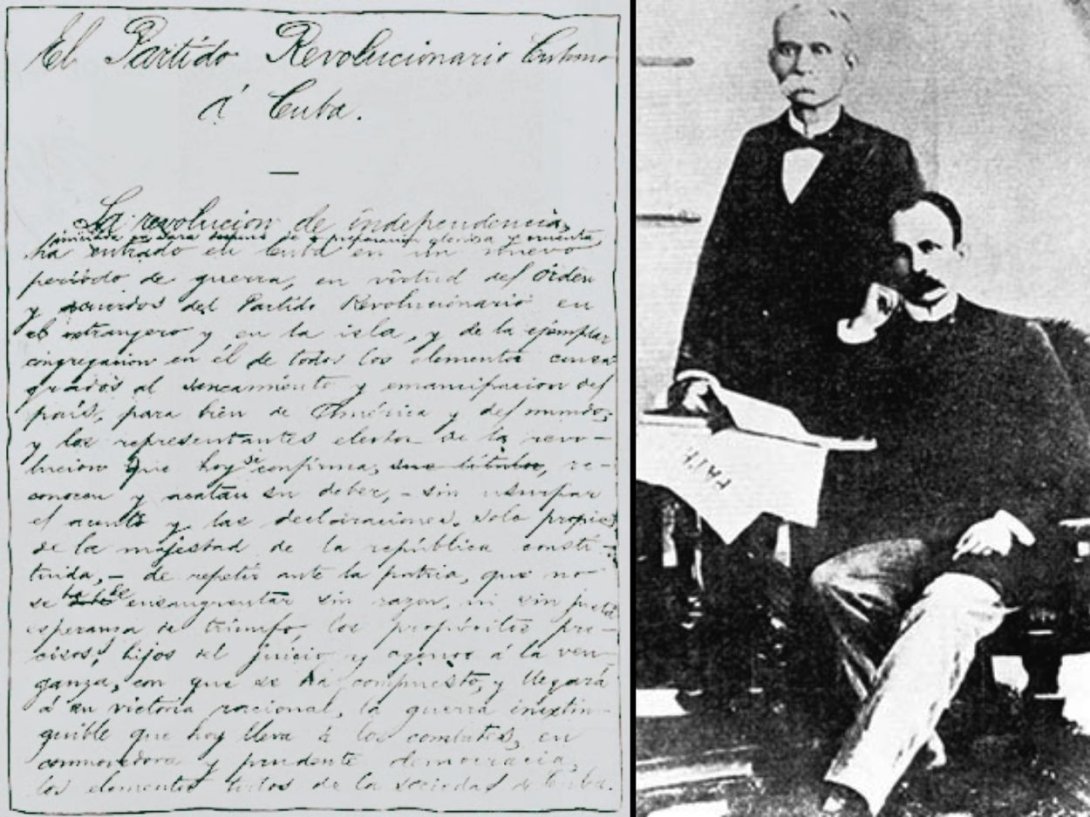 El Partido Revolucionario Cubano
á Cuba.
La revolucion de independencia,
iniciada en Yara despues de preparacion gloriosa y cruenta,
ha entrado en Cuba en un nuevo
período de guerra, en virtud del órden
y acuerdos del Partido Revolucionario en
el extrangero y en la isla, y de la ejemplar
congregacion en él de todos los elementos consa-
grados al saneamiento y emancipacion del
país, para bien de América y del mundo;
y los representantes electos de la revo-
lucion que hoy se confirma, sus títulos, re-
conocen y acatan su deber, – sin usurpar
el acento y las declaraciones, solo propias
de la majestad de la república consti-
tuida, – de repetir ante la patria, que no
se ha de ensangrentar sin razon, ni sin justa
esperanza de triunfo, los propósitos pre-
cisos, hijos del juicio y agenos á la ven-
ganza, con que se ha compuesto, y llegará
á su victoria racional, la guerra inextin-
guible que hoy lleva á los combates, en
conmovedora y prudente democracia,
los elementos todos de la sociedad de Cuba.
PATRIA